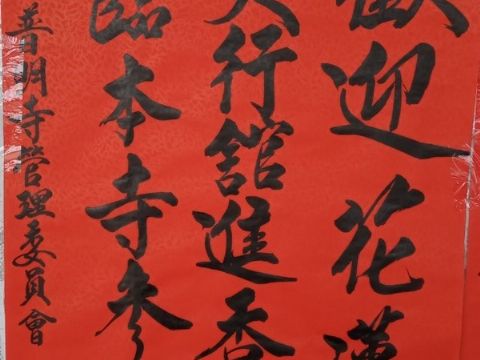 歡迎花蓮
行舘進香
臨本寺參
普明寺管理委員會